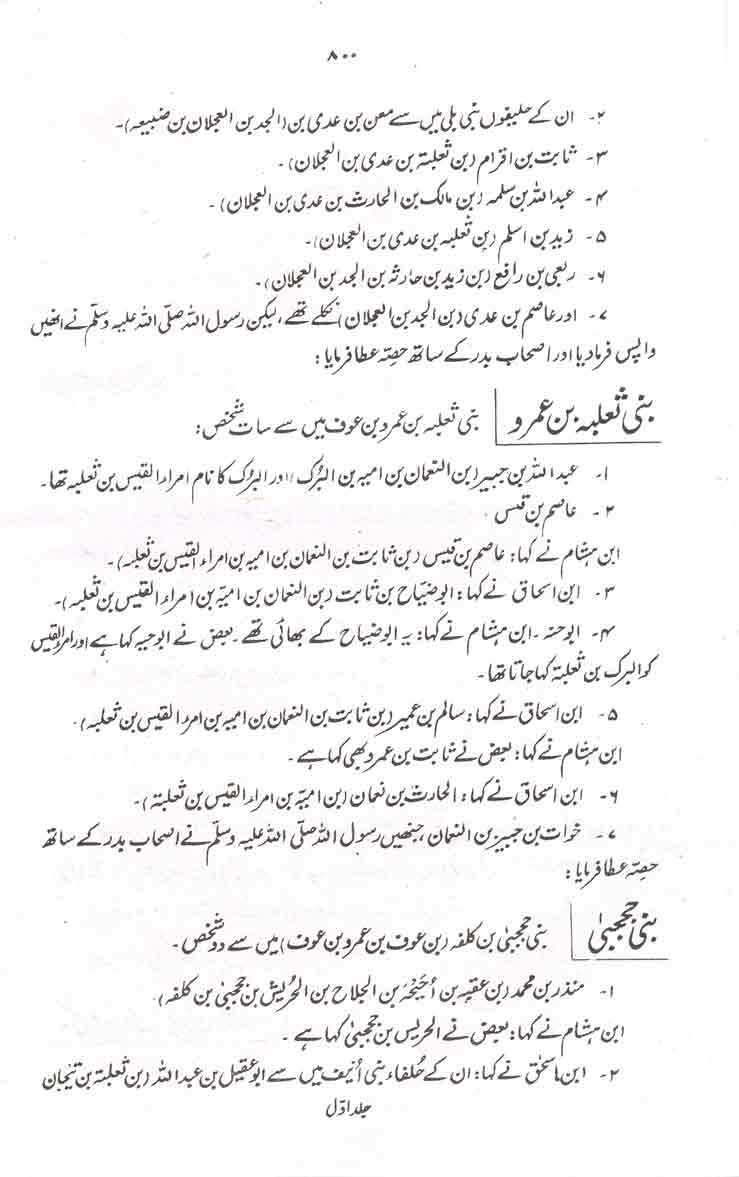 ۸۰۰
۲- ان کے حلیفوں بنی بلی میں سے معن بن عدی بن (الجد بن العجلان بن ضبیعہ)۔
۳- ثابت بن اقرام (بن ثعلبتہ بن عدی بن العجلان)۔
۴- عبداللہ بن سلمہ (بن مالک بن الحارث بن عدی بن العجلان)۔
۵- زید بن اسلم (بن ثعلبہ بن عدی بن العجلان)۔
۶- ربعی بن رافع (بن زید بن حارثہ بن الجد بن العجلان)۔
۷- اور عاصم بن عدی (بن الجد بن العجلان) نکلے تھے، لیکن رسول اللہ صلی اللہ علیہ وسلم نے انھیں
واپس فرما دیا اور اصحاب بدر کے ساتھ حصہ عطا فرمایا:
بنی ثعلبہ بن عمرو بنی ثعلبہ بن عمرو بن عوف میں سے سات شخص:
۱- عبداللہ بن جبیر (بن النعمان بن امیہ بن البُرک) اور البُرک کا نام امراء القیس بن ثعلبہ تھا۔
۲- عاصم بن قیس۔
ابن ہشام نے کہا: عاصم بن قیس (بن ثابت بن النعمان بن امیہ بن امراء القیس بن ثعلبہ)۔
۳- ابن اسحاق نے کہا: ابوضیاح بن ثابت (بن النعمان بن امیّہ بن امراء القیس بن ثعلبہ)۔
۴- ابوحنہ۔ ابن ہشام نے کہا: یہ ابوضیاح کے بھائی تھے۔ بعض نے ابوحبہ کہا ہے اور امراء القیس
کو البرک بن ثعلبتہ کہا جاتا تھا۔
۵- ابن اسحاق نے کہا: سالم بن عمیر (بن ثابت بن النعمان بن امیہ بن امرء القیس بن ثعلبہ)۔
ابن ہشام نے کہا: بعض نے ثابت بن عمرو بھی کہا ہے۔
۶- ابن اسحاق نے کہا: الحارث بن نعمان (بن امیّہ بن امراء القیس بن ثعلبتہ)۔
۷- خوات بن جبیر بن النعمان، جنھیں رسول اللہ صلی اللہ علیہ وسلم نے اصحاب بدر کے ساتھ
حصہ عطا فرمایا:
بنی جحجبیٰ بنی جحجبیٰ بن کلفہ (بن عوف بن عمرو بن عوف) میں سے دو شخص۔
۱- منذر بن محمد (بن عقبہ بن اُحَیْحَہ بن الجلاح بن الحُریش بن جحجبیٰ بن کلفہ)۔
ابن ہشام نے کہا: بعض نے الحریس بن جحجبیٰ کہا ہے۔
۲- ابن اسحٰق نے کہا: ان کے حُلفاء بنی اُنیف میں سے ابوعقیل بن عبداللہ (بن ثعلبتہ بن تیجان
جلد اوّل